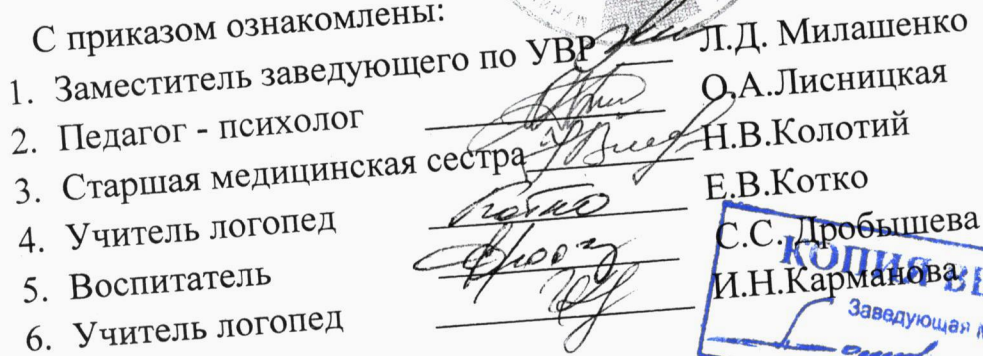 С приказом ознакомлены:
1. Заместитель заведующего по УВР Л.Д. Милашенко
2. Педагог - психолог О.А.Лисницкая
3. Старшая медицинская сестра Н.В.Колотий
4. Учитель логопед Котко Е.В.Котко
5. Воспитатель С.С. Дробышева
6. Учитель логопед И.Н.Карманова
КОПИЯ
Заведующая